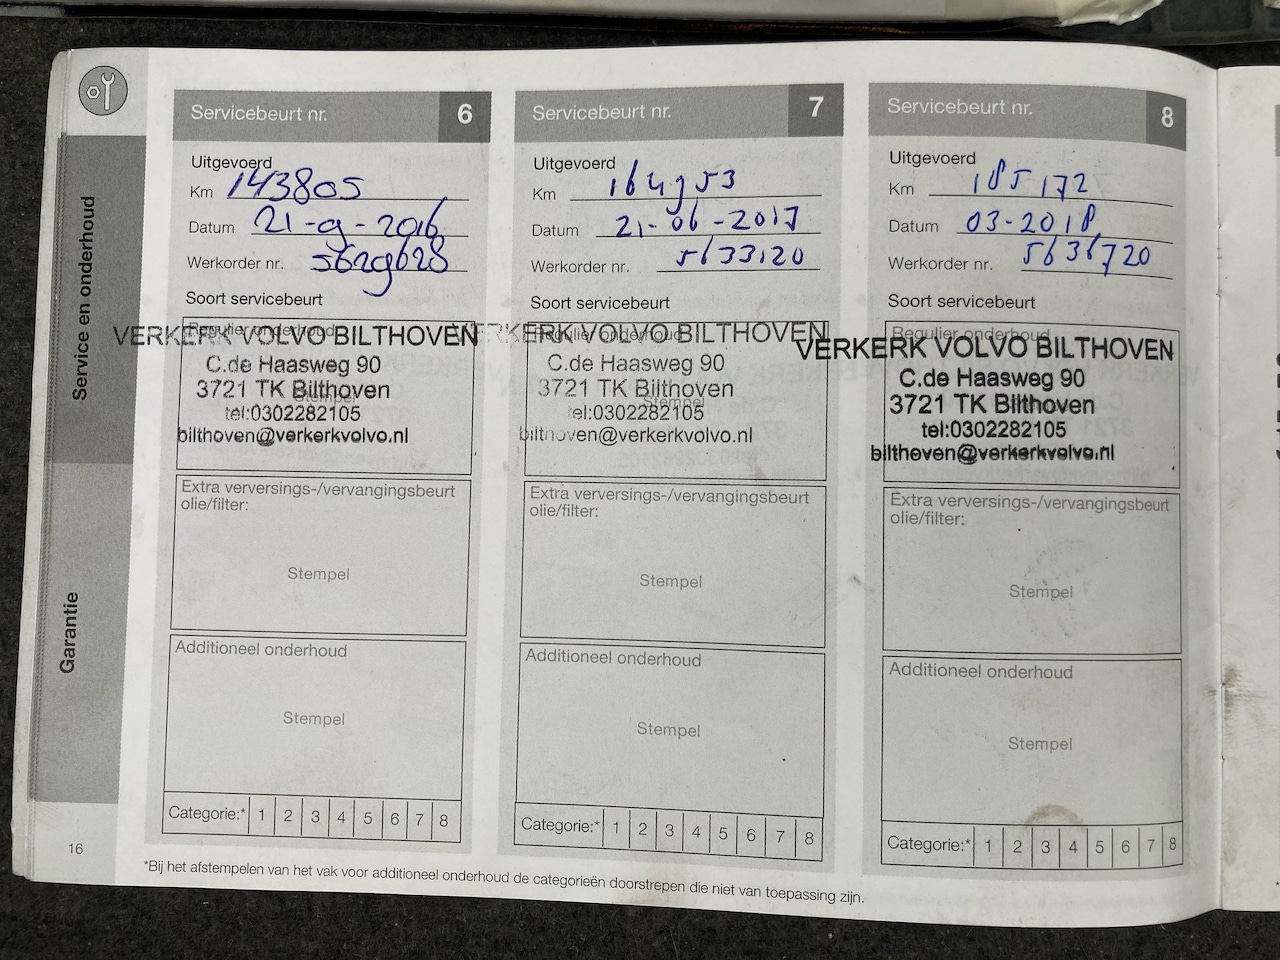 Service en onderhoud
Garantie
16
Servicebeurt nr. 6
Uitgevoerd
Km 143805
Datum 21-9-2016
Werkorder nr. 5629628
Soort servicebeurt
Regulier onderhoud
VERKERK VOLVO BILTHOVEN
C.de Haasweg 90
3721 TK Bilthoven
Stempel
tel:0302282105
bilthoven@verkerkvolvo.nl
Extra verversings-/vervangingsbeurt
olie/filter:
Stempel
Additioneel onderhoud
Stempel
Categorie:* 1 2 3 4 5 6 7 8
Servicebeurt nr. 7
Uitgevoerd
Km 164953
Datum 21-06-2017
Werkorder nr. 5633120
Soort servicebeurt
Regulier onderhoud
VERKERK VOLVO BILTHOVEN
C.de Haasweg 90
3721 TK Bilthoven
Stempel
tel:0302282105
bilthoven@verkerkvolvo.nl
Extra verversings-/vervangingsbeurt
olie/filter:
Stempel
Additioneel onderhoud
Stempel
Categorie:* 1 2 3 4 5 6 7 8
Servicebeurt nr. 8
Uitgevoerd
Km 185172
Datum 03-2018
Werkorder nr. 5636720
Soort servicebeurt
Regulier onderhoud
VERKERK VOLVO BILTHOVEN
C.de Haasweg 90
3721 TK Bilthoven
tel:0302282105
bilthoven@verkerkvolvo.nl
Extra verversings-/vervangingsbeurt
olie/filter:
Stempel
Additioneel onderhoud
Stempel
Categorie:* 1 2 3 4 5 6 7 8
*Bij het afstempelen van het vak voor additioneel onderhoud de categorieën doorstrepen die niet van toepassing zijn.